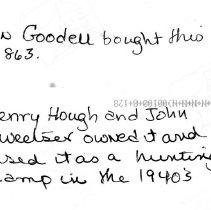 n Goodell bought this
863.
enry Hough and John
weetser owned it and
sed it as a hunting
camp in the 1940's